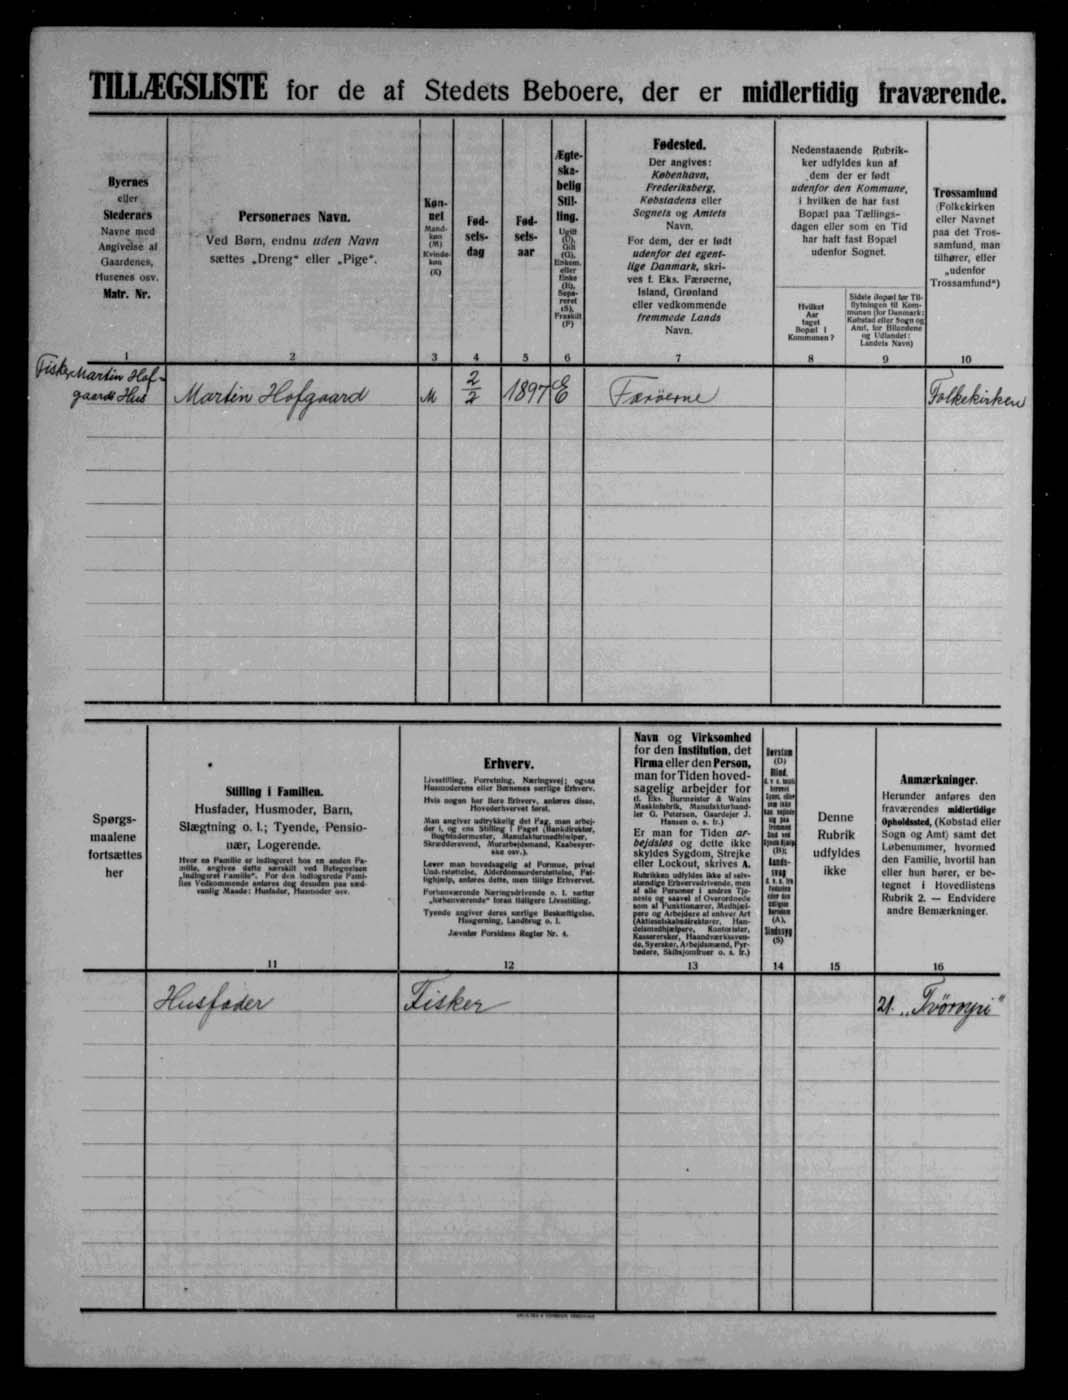 TILLÆGSLISTE for de af Stedets Beboere, der er midlertidig fraværende.
Byernes
eller
Stedernes
Navne med
Angivelse af
Gaardenes,
Husenes osv.
Matr. Nr.
1
Personernes Navn.
Ved Børn, endnu uden Navn
sættes „Dreng“ eller „Pige“.
2
Køn-
net
Mand-
køn
(M)
Kvinde-
køn
(K)
3
Fød-
sels-
dag
4
Fød-
sels-
aar
5
Ægte-
ska-
belig
Stil-
ling.
Ugift
(U),
Gift
(G),
Enkem.
eller
Enke
(E),
Sepa-
reret
(S),
Fraskilt
(F)
6
Fødested.
Der angives:
København,
Frederiksberg,
Købstadens eller
Sognets og Amtets
Navn.
For dem, der er født
udenfor det egent-
lige Danmark, skri-
ves f. Eks. Færøerne,
Island, Grønland
eller vedkommende
fremmede Lands
Navn.
7
Nedenstaaende Rubrik-
ker udfyldes kun af
dem der er født
udenfor den Kommune,
i hvilken de har fast
Bopæl paa Tællings-
dagen eller som en Tid
har haft fast Bopæl
udenfor Sognet.
Hvilket
Aar
taget
Bopæl i
Kommunen?
8
Sidste Bopæl før Til-
flytningen til Kom-
munen (for Danmark:
Købstad eller Sogn og
Amt, for Bilandene
og Udlandet:
Landets Navn)
9
Trossamfund
(Folkekirken
eller Navnet
paa det Tros-
samfund, man
tilhører, eller
„udenfor
Trossamfund“)
10
Fisker Martin Hof-
gaards Hus
Martin Hofgaard
M
2/2
1897
E
Færøerne
Folkekirken
Spørgs-
maalene
fortsættes
her
Stilling i Familien.
Husfader, Husmoder, Barn,
Slægtning o. l.; Tyende, Pensio-
nær, Logerende.
Hvor en Familie er indlogeret hos en anden Fa-
milie, angives dette særskilt ved Betegnelsen
„indlogeret Familie“. For den indlogerede Fami-
lies Vedkommende anføres dog desuden paa sæd-
vanlig Maade: Husfader, Husmoder osv.
11
Erhverv.
Livsstilling, Forretning, Næringsvej; ogsaa
Husmoderens eller Børnenes særlige Erhverv.
Hvis nogen har flere Erhverv, anføres disse,
Hovederhvervet først.
Man angiver udtrykkelig det Fag, man arbej-
der i, og ens Stilling i Faget (Bankdirektør,
Bogbindermester, Manufakturmedhjælper,
Skræddersvend, Murarbejdsmand, Kaabesyer-
ske osv.).
Lever man hovedsagelig af Formue, privat
Understøttelse, Alderdomsunderstøttelse, Fat-
tighjælp, anføres dette, men tillige Erhvervet.
Forhenværende Næringsdrivende o. l. sætter
„forhenværende“ foran tidligere Livsstilling.
Tyende angiver deres særlige Beskæftigelse.
Husgerning, Landbrug o. l.
Jævnfør Forsidens Regler Nr. 4.
12
Navn og Virksomhed
for den Institution, det
Firma eller den Person,
man for Tiden hoved-
sagelig arbejder for
(f. Eks. Burmeister & Wains
Maskinfabrik, Manufakturhand-
ler G. Petersen, Gaardejer J.
Hansen o. s. fr.)
Er man for Tiden ar-
bejdsløs og dette ikke
skyldes Sygdom, Strejke
eller Lockout, skrives A.
Rubrikken udfyldes ikke af selv-
stændige Erhvervsdrivende, men
af alle Personer i andres Tje-
neste og saavel af Overordnede
som af Funktionærer, Medhjæl-
pere og Arbejdere af enhver Art
(Aktieselskabsdirektører, Han-
delsmedhjælpere, Kontorister,
Kassererske, Haandværkssven-
de, Syersker, Arbejdsmænd, Fyr-
bødere, Skibsjomfruer o. s. fr.)
13
Døvstum
(D)
Blind,
(B);
Aands-
svag
(A),
Sindssyg
(S)
14
Denne
Rubrik
udfyldes
ikke
15
Anmærkninger.
Herunder anføres den
fraværendes midlertidige
Opholdssted, (Købstad eller
Sogn og Amt) samt det
Løbenummer, hvormed
den Familie, hvortil han
eller hun hører, er be-
tegnet i Hovedlistens
Rubrik 2. — Endvidere
andre Bemærkninger.
16
Husfader
Fisker
21. „Tvöroyri“